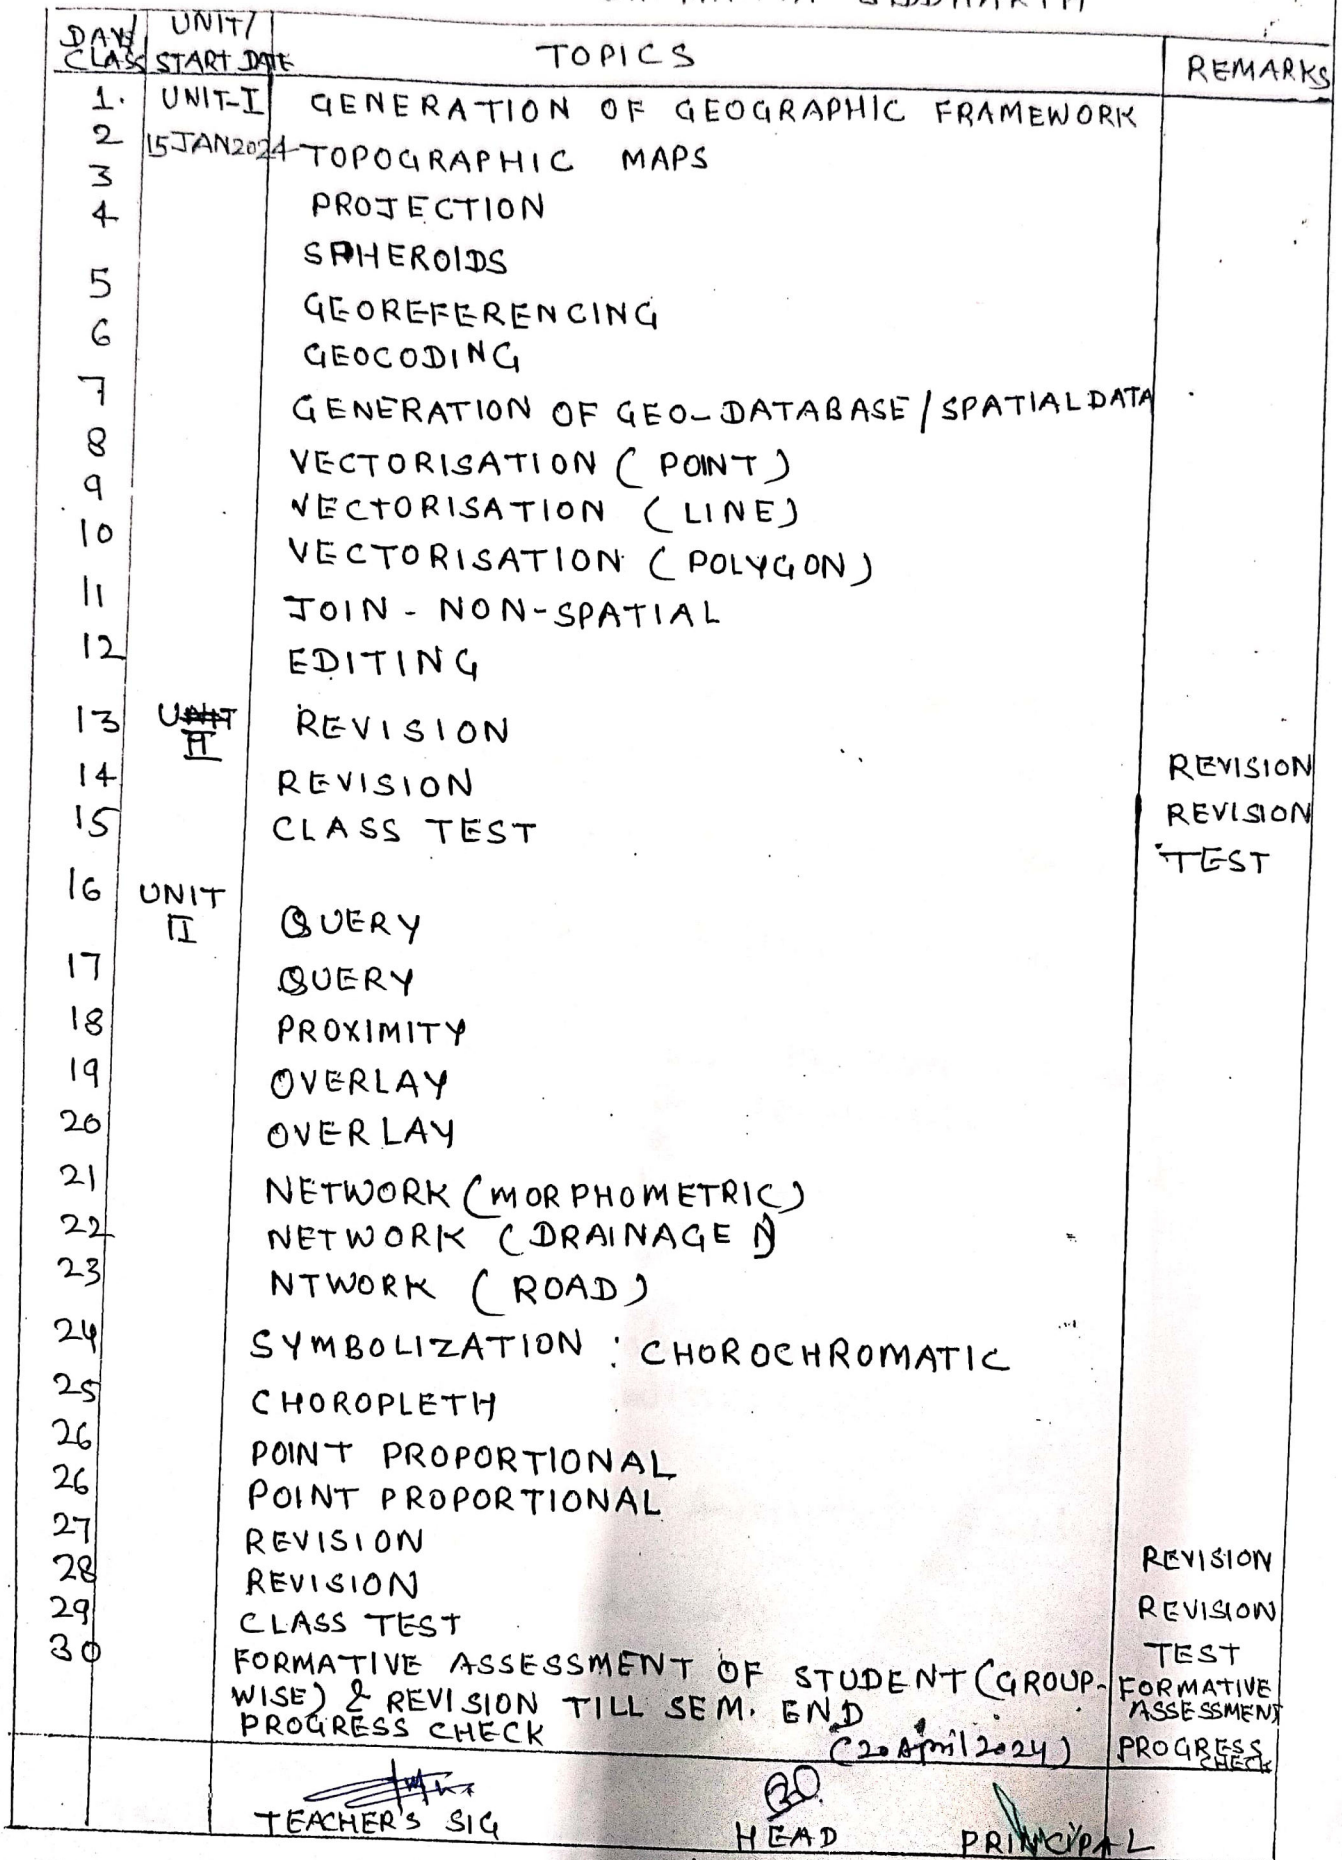 DAY/ UNIT/
CLASS START DATE TOPICS REMARKS
1. UNIT-I GENERATION OF GEOGRAPHIC FRAMEWORK
2 15 JAN 2024 TOPOGRAPHIC MAPS
3 PROJECTION
4 SPHEROIDS
5 GEOREFERENCING
6 GEOCODING
7 GENERATION OF GEO-DATABASE/SPATIAL DATA
8 VECTORISATION (POINT)
9 VECTORISATION (LINE)
10 VECTORISATION (POLYGON)
11 JOIN - NON-SPATIAL
12 EDITING
13 UNIT II REVISION
14 REVISION REVISION
15 CLASS TEST REVISION
TEST
16 UNIT II QUERY
17 QUERY
18 PROXIMITY
19 OVERLAY
20 OVERLAY
21 NETWORK (MORPHOMETRIC)
22 NETWORK (DRAINAGE)
23 NTWORK (ROAD)
24 SYMBOLIZATION : CHOROCHROMATIC
25 CHOROPLETH
26 POINT PROPORTIONAL
26 POINT PROPORTIONAL
27 REVISION REVISION
28 REVISION REVISION
29 CLASS TEST TEST
30 FORMATIVE ASSESSMENT OF STUDENT (GROUP- FORMATIVE
WISE) & REVISION TILL SEM. END ASSESSMENT
PROGRESS CHECK (20 April 2024) PROGRESS
CHECK
TEACHER'S SIG HEAD PRINCIPAL